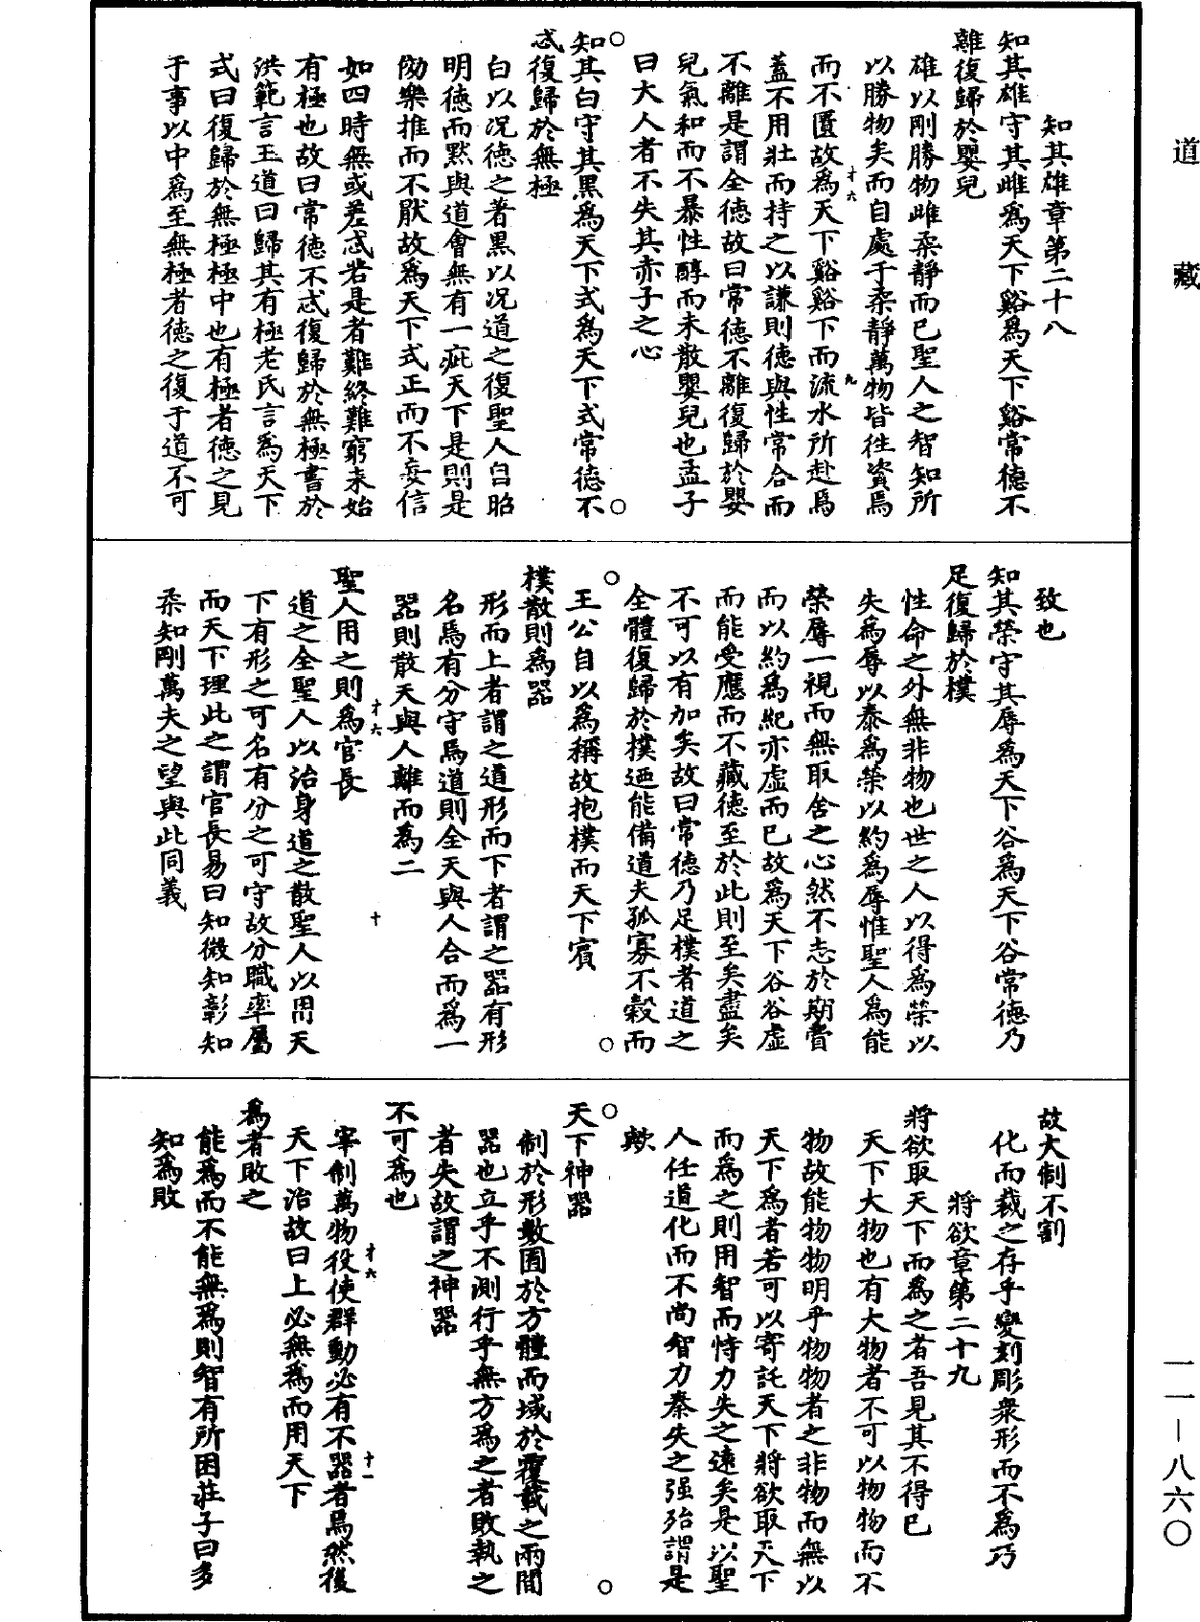 道藏
知其雄章第二十八
知其雄守其雌為天下谿為天下谿常德不
離復歸於嬰兒
雄以剛勝物雌柔靜而已聖人之智知所
以勝物矣而自處于柔靜萬物皆往資焉
而不匱故為天下谿谿下而流水所赴焉
蓋不用壯而持之以謙則德與性常合而
不離是謂全德故曰常德不離復歸於嬰
兒氣和而不暴性醇而未散嬰兒也孟子
曰大人者不失其赤子之心
知其白守其黑為天下式為天下式常德不
忒復歸於無極
白以况德之著黑以况道之復聖人自昭
明德而默與道會無有一疵天下是則是
傚樂推而不厭故為天下式正而不妄信
如四時無或差忒若是者難終難窮未始
有極也故曰常德不忒復歸於無極書於
洪範言王道曰歸其有極老氏言為天下
式曰復歸於無極極中也有極者德之見
于事以中為至無極者德之復于道不可
才六
九
致也
知其榮守其辱為天下谷為天下谷常德乃
足復歸於樸
性命之外無非物也世之人以得為榮以
失為辱以泰為榮以約為辱惟聖人為能
榮辱一視而無取舍之心然不志於期費
而以約為紀亦虛而已故為天下谷谷虛
而能受應而不藏德至於此則至矣盡矣
不可以有加矣故曰常德乃足樸者道之
全體復歸於樸迺能備道夫孤寡不穀而
王公自以為稱故抱樸而天下賓
樸散則為器
形而上者謂之道形而下者謂之器有形
名焉有分守焉道則全天與人合而為一
器則散天與人離而為二
聖人用之則為官長
道之全聖人以治身道之散聖人以用天
下有形之可名有分之可守故分職率屬
而天下理此之謂官長易曰知微知彰知
柔知剛萬夫之望與此同義
才六
十
故大制不割
化而裁之存乎變刻彫衆形而不為巧
將欲章第二十九
將欲取天下而為之者吾見其不得已
天下大物也有大物者不可以物物而不
物故能物物明乎物物者之非物而無以
天下為者若可以寄託天下將欲取天下
而為之則用智而恃力失之遠矣是以聖
人任道化而不尚智力秦失之强殆謂是
歟
天下神器
制於形數囿於方體而域於覆載之兩間
器也立乎不測行乎無方為之者敗執之
者失故謂之神器
不可為也
宰制萬物役使群動必有不器者焉然後
天下治故曰上必無為而用天下
為者敗之
能為而不能無為則智有所困莊子曰多
知為敗
才六
十一
一一－八六〇